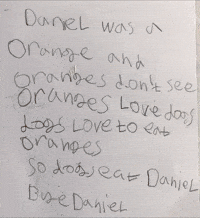 Daniel was a
Orange and
Oranges don't see
Oranges Love dogs
dogs Love to eat
Oranges
so dogs eat Daniel
Bye Daniel